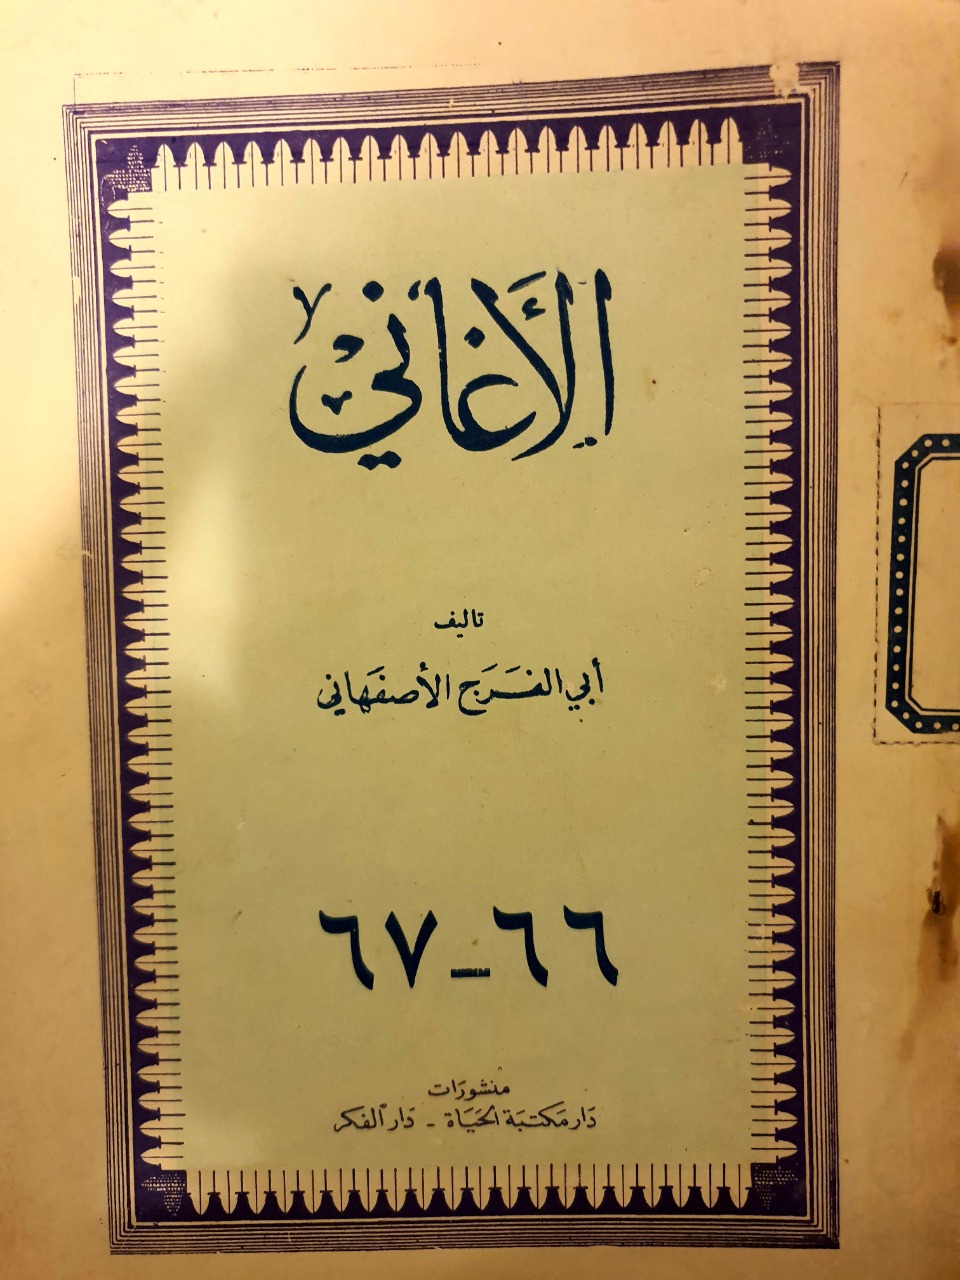 الأغاني
تاليف
أبي الفَرَج الأصفَهاني
٦٦ - ٦٧
منشورَات
دَار مَكتبَة الحَيَاة - دَار الفكر